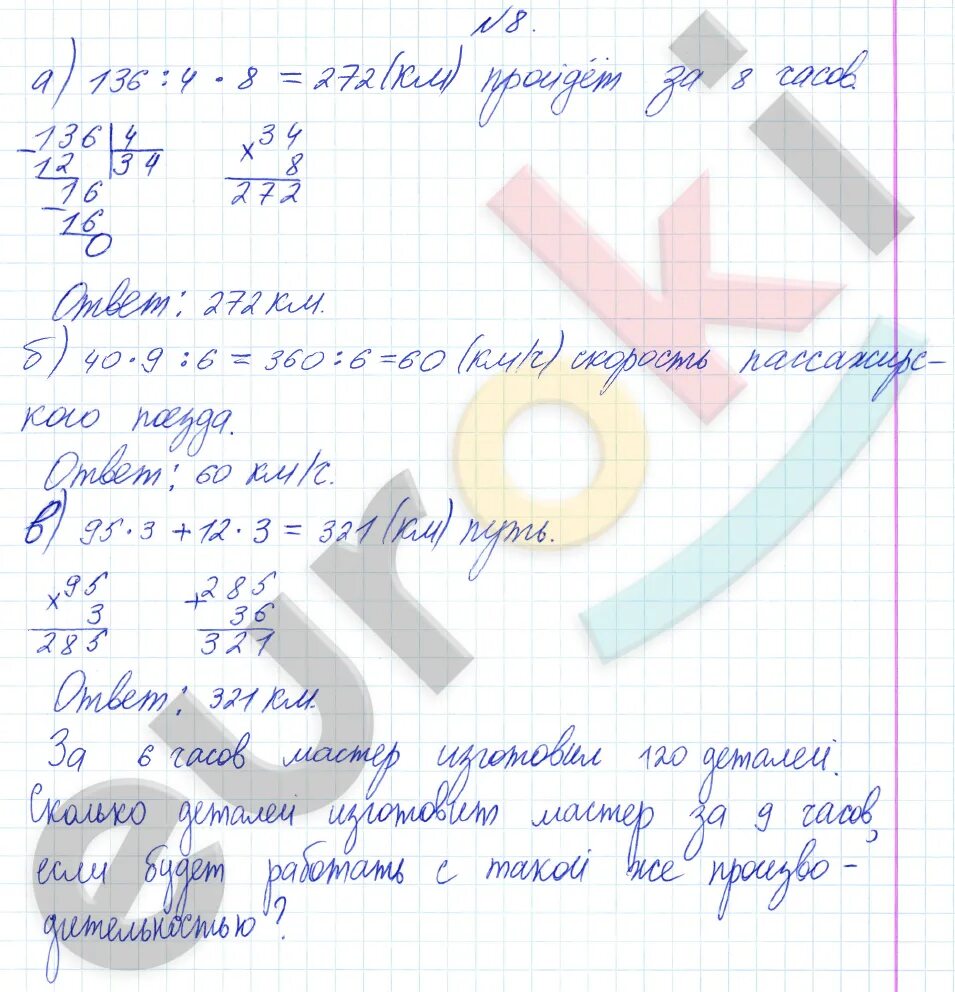 №8.
а) 136 : 4 · 8 = 272 (км) пройдёт за 8 часов.
136 | 4
12 | 34
16
16
0
× 34
8
272
Ответ: 272 км.
б) 40 · 9 : 6 = 360 : 6 = 60 (км/ч) скорость пассажирс-
кого поезда.
Ответ: 60 км/ч.
в) 95 · 3 + 12 · 3 = 321 (км) путь.
× 95
3
285
+ 285
36
321
Ответ: 321 км.
За 6 часов мастер изготовил 120 деталей.
Сколько деталей изготовит мастер за 9 часов,
если будет работать с такой же произво-
дительностью?
euroki